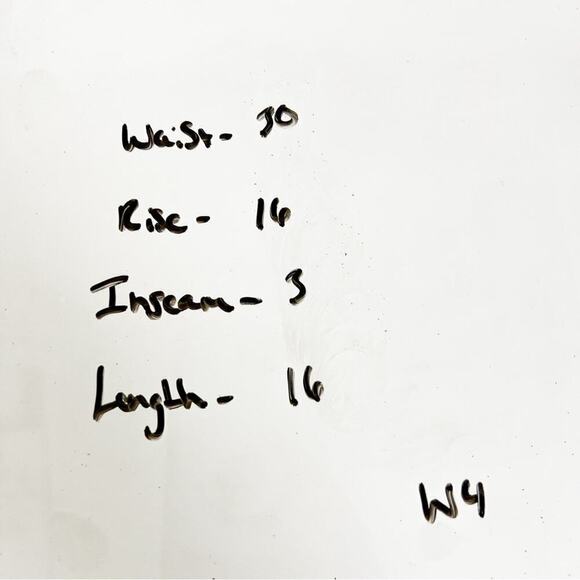 Waist- 30
Rise- 16
Inseam- 3
Length- 16
W4